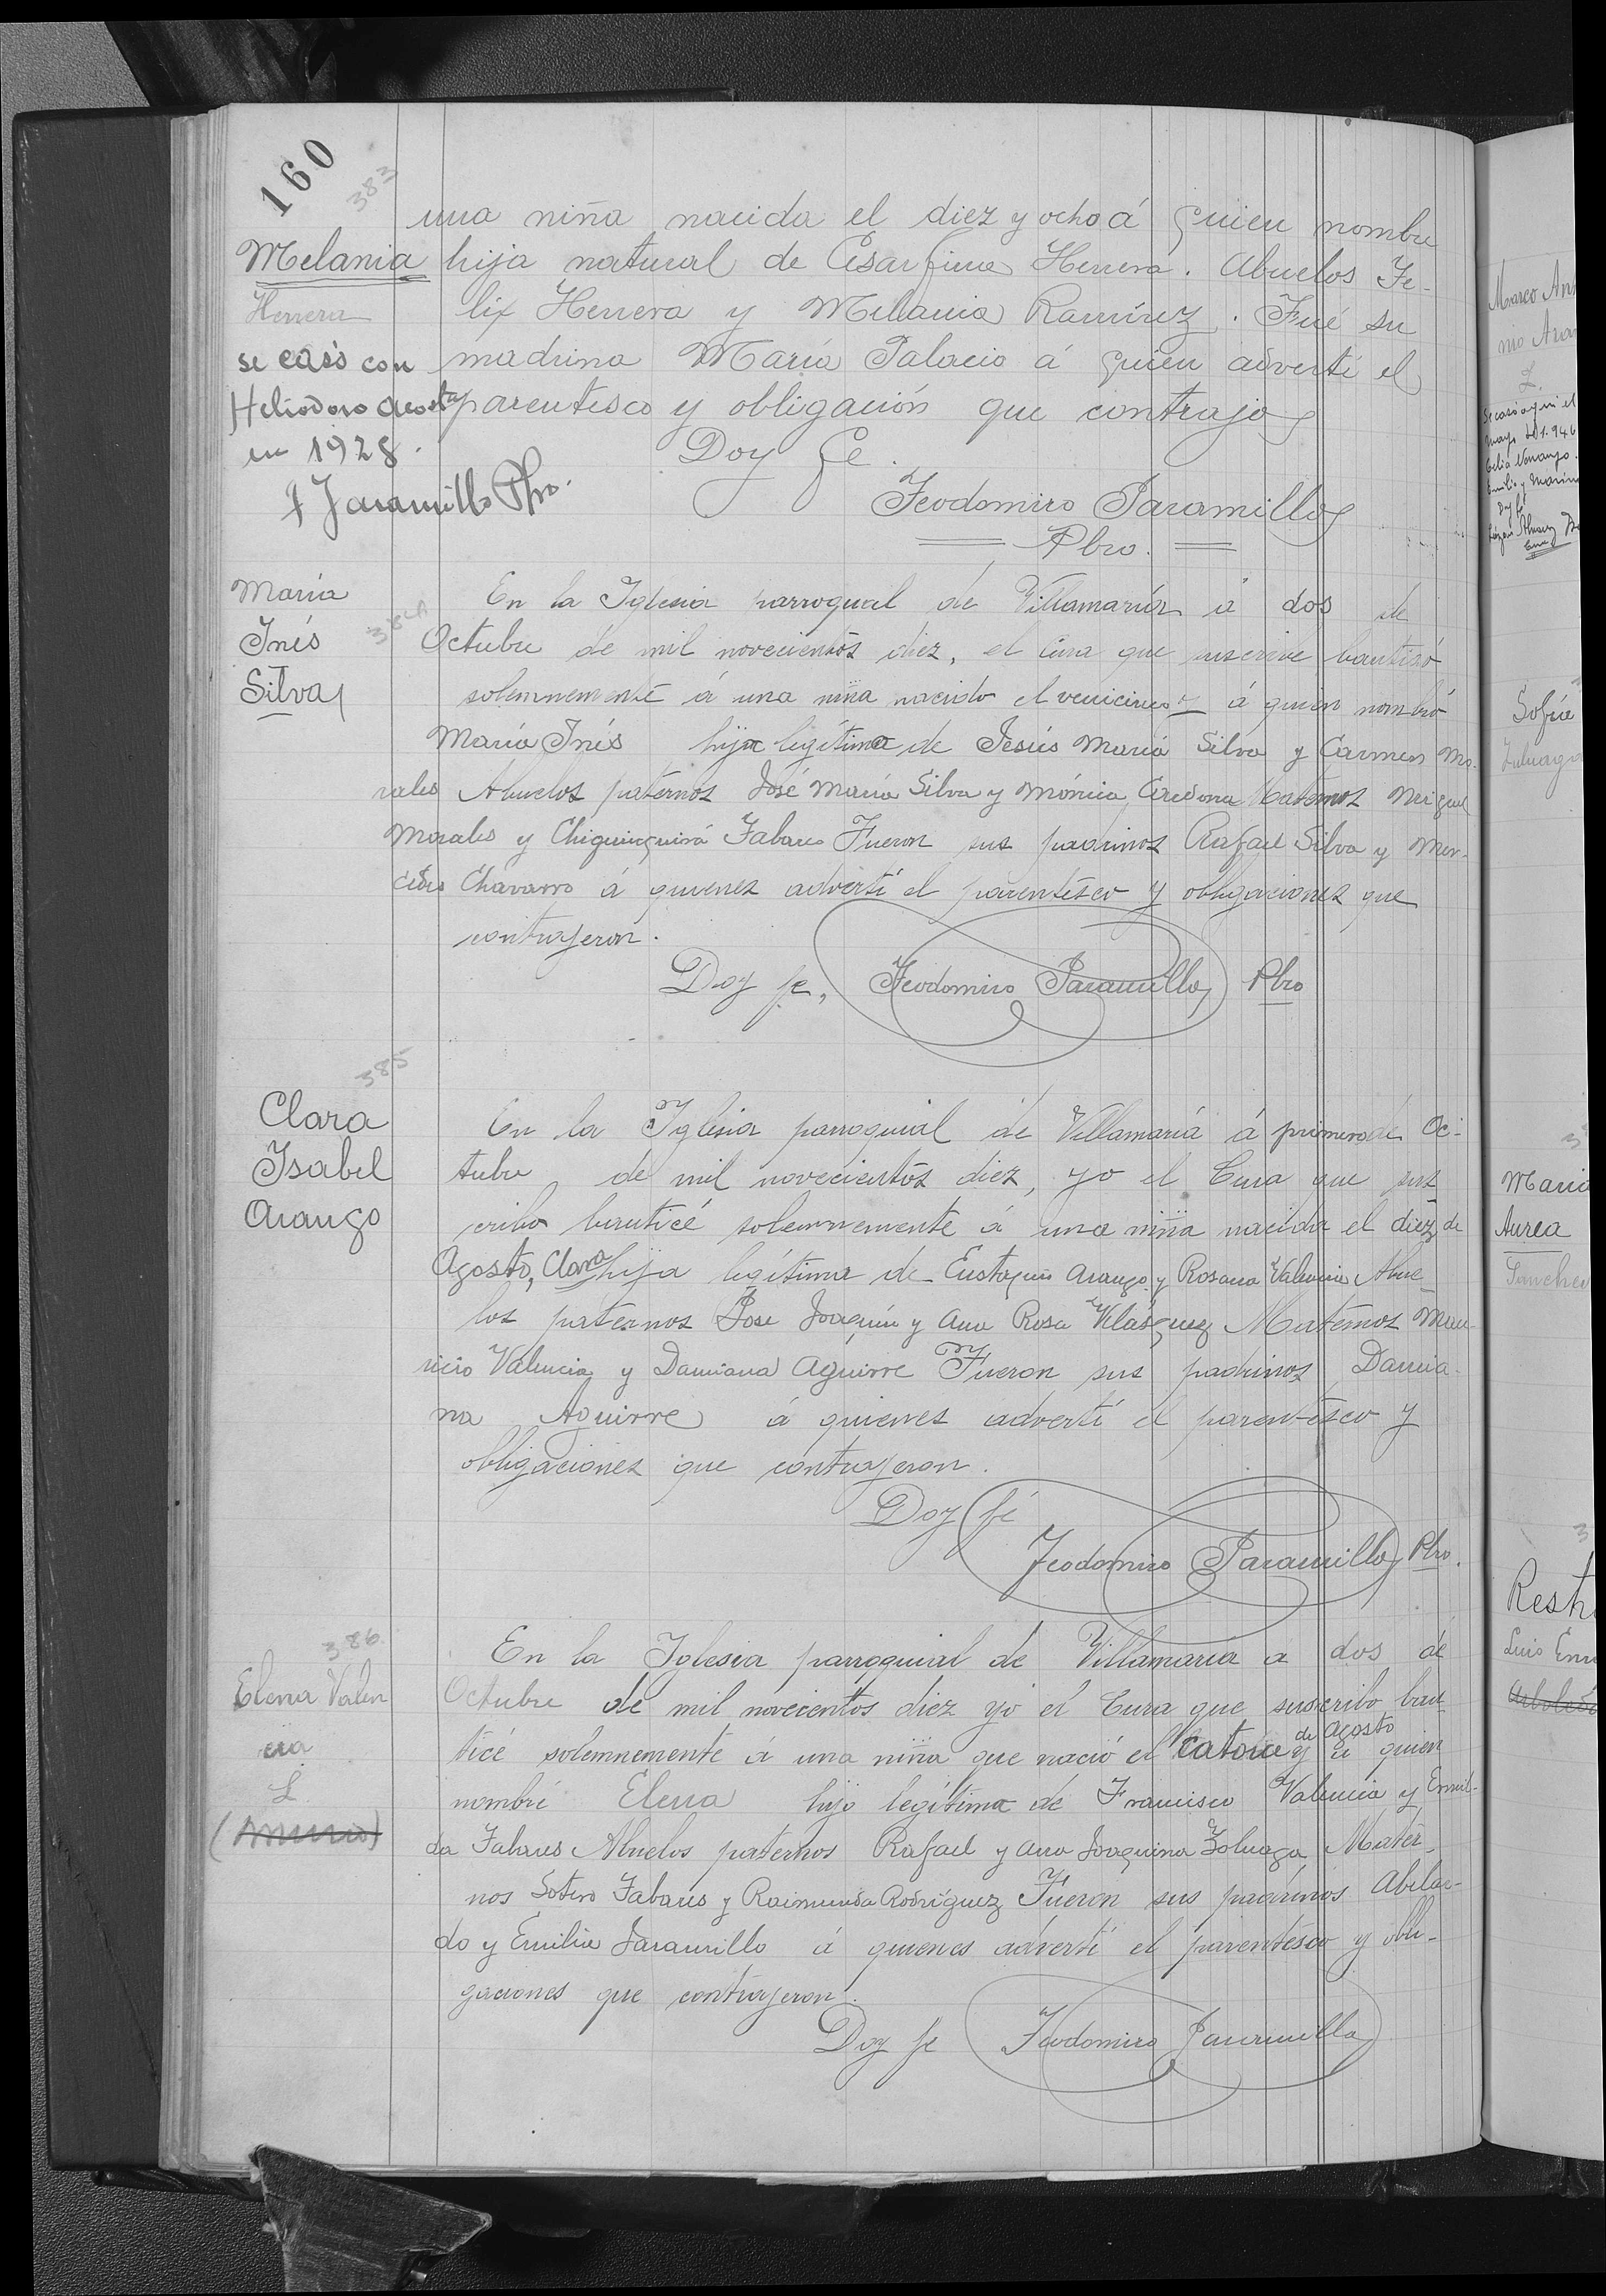 160
383
una niña nacida el diez y ocho á quien nombré
Melania hija natural de Cesarfina Herrera. Abuelos Fe-
Herrera
lix Herrera y Melania Ramírez. Fué su
se casó con
madrina María Palacio á quien advertí el
Heliodoro Acosta
parentesco y obligación que contrajo
en 1928.
Doy fe
F Jaramillo Pbro.
Teodomiro Jaramillo
Pbro.
María
Inés
Silva
384
En la Iglesia parroquial de Villamaría á dos de
Octubre de mil novecientos diez, el Cura que suscribe bautizó
solemnemente á una niña nacido el á quien nombró
María Inés hija legítima de Jesús María Silva y Carmen Mo-
rales Abuelos paternos José María Silva y Mónica Cardona Maternos Miguel
Morales y Chiquinquirá Tabares Fueron sus padrinos Rafael Silva y Mer-
cedes Chavarro á quienes advertí el parentesco y obligaciones que
contrajeron.
Doy fe, Teodomiro Jaramillo Pbro
385
Clara
Isabel
Arango
En la Iglesia parroquial de Villamaría á primero de Oc-
tubre de mil novecientos diez, yo el Cura que sus
cribo bauticé solemnemente á una niña nacida el diez de
Agosto, Clara hija legítima de Eustaquio Arango y Rosana Valencia Abue
los paternos Jose Joaquín y Ana Rosa Velásquez Maternos Mau-
ricio Valencia y Damiana Aguirre Fueron sus padrinos Damia-
na Aguirre á quienes advertí el parentesco y
obligaciones que contrajeron.
Doy fé
Teodomiro Jaramillo Pbro.
386
Elena Valen
cia
L
En la Iglesia parroquial de Villamaría a dos de
Octubre de mil novecientos diez yo el Cura que suscribo bau-
ticé solemnemente á una niña que nació el catorce de Agosto y á quien
nombré Elena hija legítima de Francisco Valencia y Emil-
da Tabares Abuelos paternos Rafael y Ana Joaquina Zuluaga Mater-
nos Sotero Tabares y Raimunda Rodríguez Fueron sus padrinos Abelar-
do y Emilia Jaramillo á quienes advertí el parentesco y obli-
gaciones que contrajeron.
Doy fe Teodomiro Jaramillo
Marco An
nio Aran
L.
Se casó aquí el
Mayo 1.946
Celia Naranjo.
Emilio y
Doy fe
Sofía
Zuluaga
Maria
Aurea
Sanchez
Rest
Luis Enri